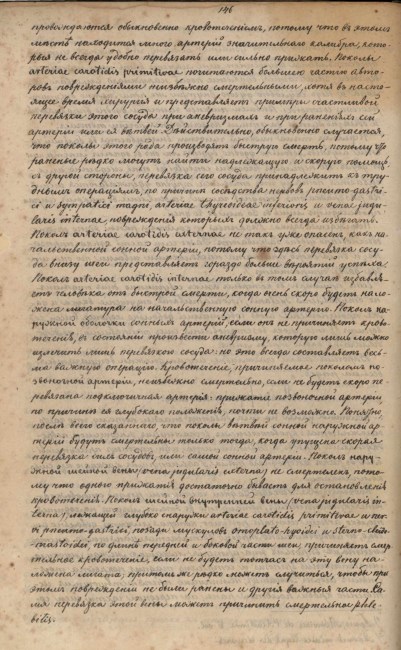 146
провождаются обыкновенно кровотеченіемъ, потому что въ этомъ
мѣстѣ находится много артерій значительнаго калибра, кото-
рыя не всегда удобно перевязать или сильно прижать. Уколы
arteriae carotidis primitivae почитаются большею частію авто-
ровъ поврежденіями неизбѣжно смертельными, хотя въ насто-
ящее время хирургія и представляетъ примѣры счастливой
перевязки этого сосуда при аневризмахъ и при раненіяхъ сей
артеріи или ея вѣтвей. Дѣйствительно, обыкновенно случается,
что уколы этого рода производятъ быструю смерть, потому что
раненые рѣдко могутъ найти надлежащую и скорую помощь;
съ другой стороны, перевязка сего сосуда принадлежитъ къ тру-
днымъ операціямъ, по причинѣ сосѣдства нервовъ pneumo-gastri-
ci и sympatici magni, arteriae thyreoideae inferioris и vena jugu-
laris internae, поврежденія которыхъ должно всегда избѣгать.
Уколы arteriae carotidis externae не такъ уже опасны, какъ на-
чальственной сонной артеріи, потому что здѣсь перевязка сосу-
да внизу шеи представляетъ гораздо больше вѣроятія успѣха.
Уколъ arteriae carotidis internae только въ томъ случаѣ избавля-
етъ человѣка отъ быстрой смерти, когда очень скоро будетъ нало-
жена лигатура на начальственную сонную артерію. Уколъ на-
ружной оболочки сонныхъ артерій, если онъ не причиняетъ крово-
теченія, въ состояніи произвести аневризму, которую лишь можно
излѣчить лишь перевязкою сосуда: но это всегда составляетъ весь-
ма важную операцію. Кровотеченіе, причиняемое уколомъ по-
звоночной артеріи, неизбѣжно смертельно, если не будетъ скоро пе-
ревязана подключичная артерія: прижатіе позвоночной артеріи,
по причинѣ ея глубокаго положенія, почти не возможно. Понятно,
послѣ всего сказаннаго, что уколы вѣтвей сонной наружной ар-
теріи будутъ смертельны только тогда, когда упущена скорая
перевязка сихъ сосудовъ или самой сонной артеріи. Уколъ нару-
жной шейной вены (vena jugularis externa) не смертеленъ, пото-
му что одного прижатія достаточно бываетъ для остановленія
кровотеченія. Уколъ шейной внутренней вены (vena jugularis in-
terna), лежащей глубоко снаружи arteriae carotidis primitivae и ner-
vi pneumo-gastrici, позади мускуловъ omoplato-hyoidei и sterno-cleido-
mastoidei, по длинѣ передней и боковой части шеи, причиняетъ смер-
тельное кровотеченіе, если не будетъ тотчасъ на эту вену на-
ложена лигатура, притомъ же рѣдко можетъ случиться, чтобы при
этомъ поврежденіи не были ранены и другія важныя части. Са-
мая перевязка этой вены можетъ причинить смертельное phle-
bitis.